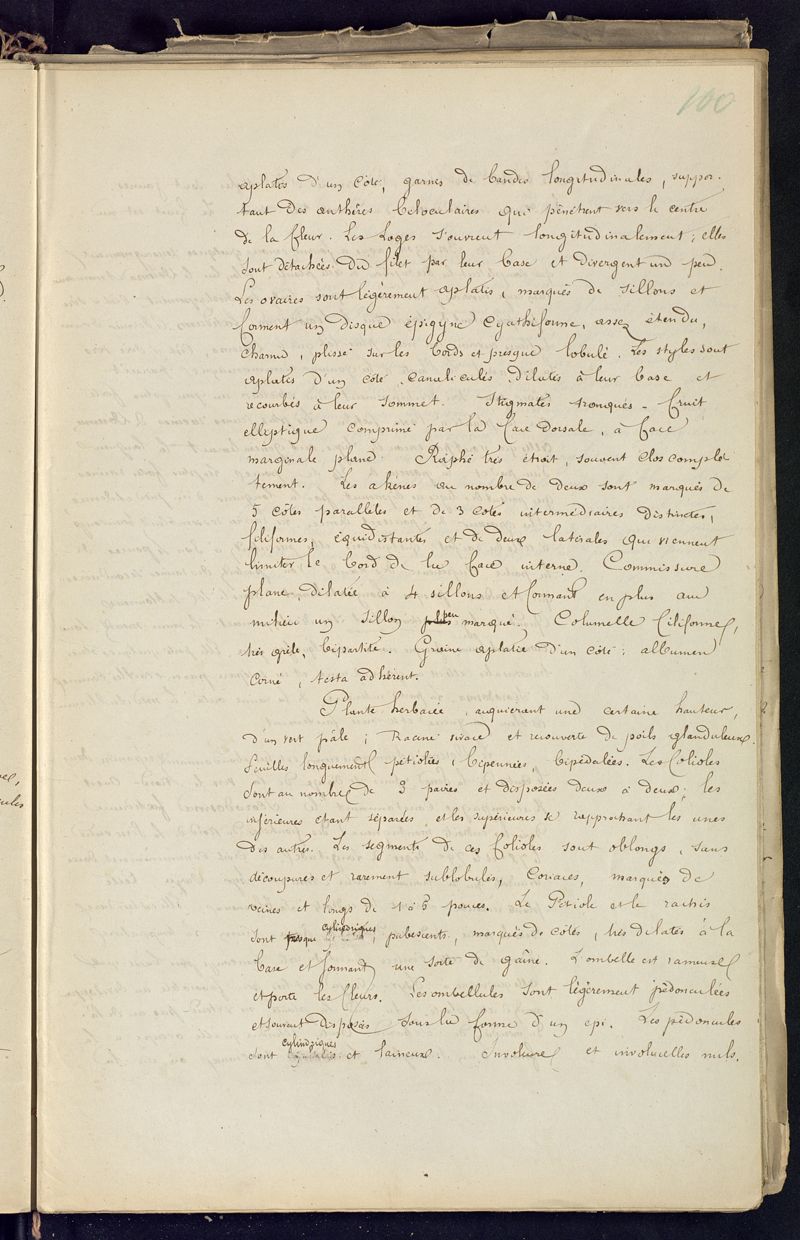 100
aplatis d'un côté, garnis de bandes longitudinales, suppor-
tant des anthères biloculaires qui pénètrent vers le centre
de la fleur. Les Loges s'ouvrent longitudinalement; elles
sont détachées du filet par leur base et divergent un peu.
Les ovaires sont légèrement aplatis, marqués de sillons et
forment un disque épigyne cyathiforme, assez étendu,
charnu, plissé sur les bords et presque lobulé. Les styles sont
aplatis d'un côté, canaliculés, dilatés à leur base et
recourbés à leur sommet. Stigmates tronqués. Fruit
elliptique comprimé par la face dorsale, à face
marginale plane. Raphé très étroit, souvent clos complè
tement. Les akènes au nombre de deux sont marqués de
5 côtes parallèles et de 3 côtes intermédiaires distinctes,
filiformes, équidistantes et de deux latérales qui viennent
limiter le bord de la face interne. Commissure
plane, dilatée à 4 sillons et formant en plus au
milieu un sillon peu marqué. Columelle filiforme,
très grêle, bipartite. Graine aplatie d'un côté; albumen
corné, testa adhérent.
Plante herbacée, acquierant une certaine hauteur,
d'un vert pâle; Racine vivace et recouverte de poils glanduleux.
Feuilles longuement pétiolées, bipennées, bipédalées. Les folioles
sont au nombre de 3 paires et disposées deux à deux; les
inférieures étant séparées, et les supérieures se rapprochant les unes
des autres. Les segments de ces folioles sont oblongs, sans
découpures et rarement sublobulés, Coriaces, marqués de
veines et longs de 4 à 6 pouces. Le Pétiole et le rachis
sont presque cylindriques, pubescents, marqués de côtes, très dilatés à la
base et formant une sorte de gaîne. L'ombelle est rameuse
et porte les fleurs. Les ombellules sont légèrement pédonculées
et souvent disposées sous la forme d'un épi. Les pédoncules
sont cylindriques et laineux. Involucre et involucelles nuls.